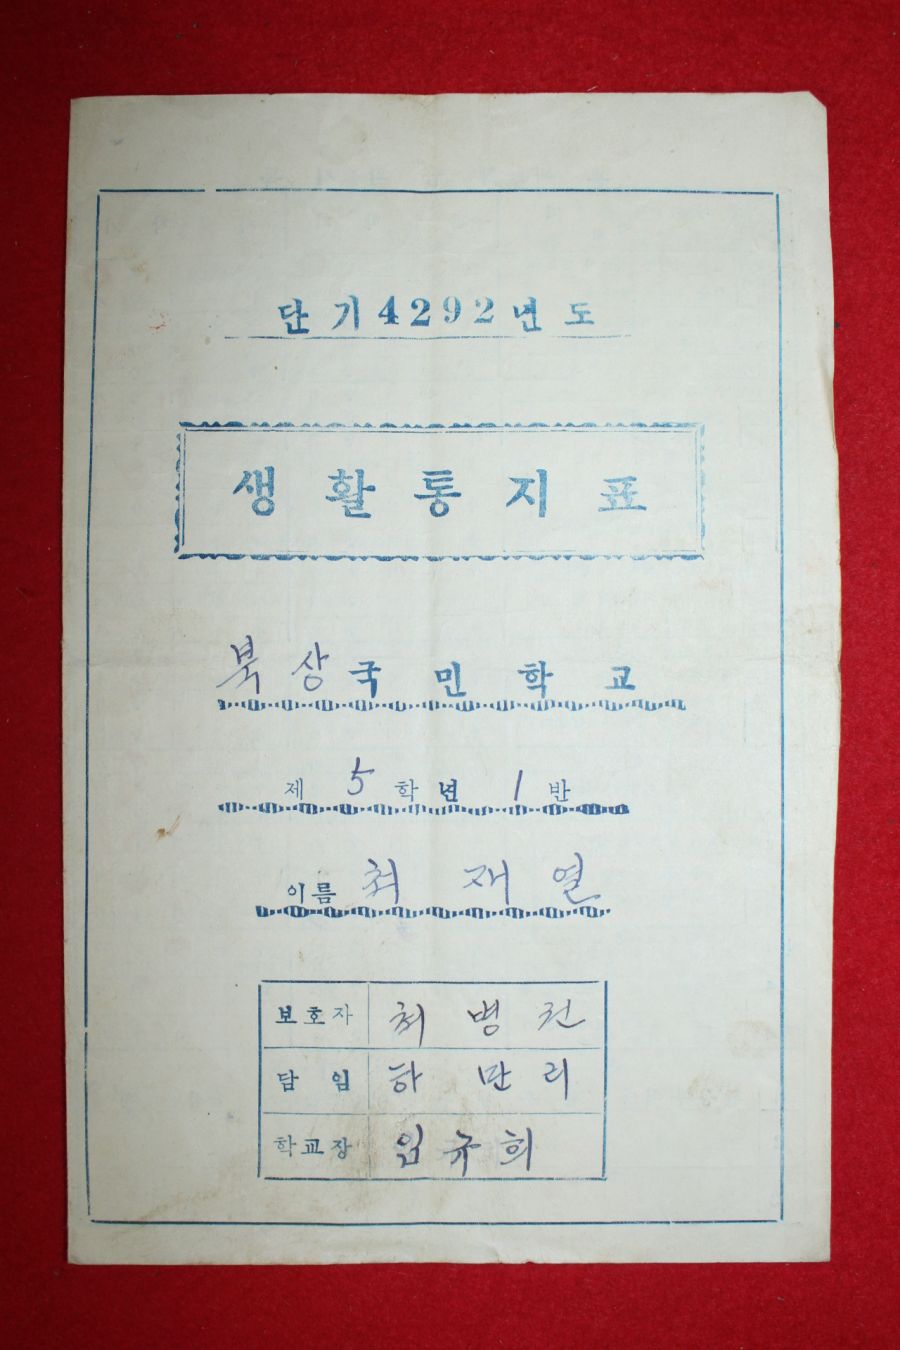 단기4292년도
생활통지표
북상국민학교
제 5학년 1반
이름 최재열
보호자 최병천
담임 하만리
학교장 임규희